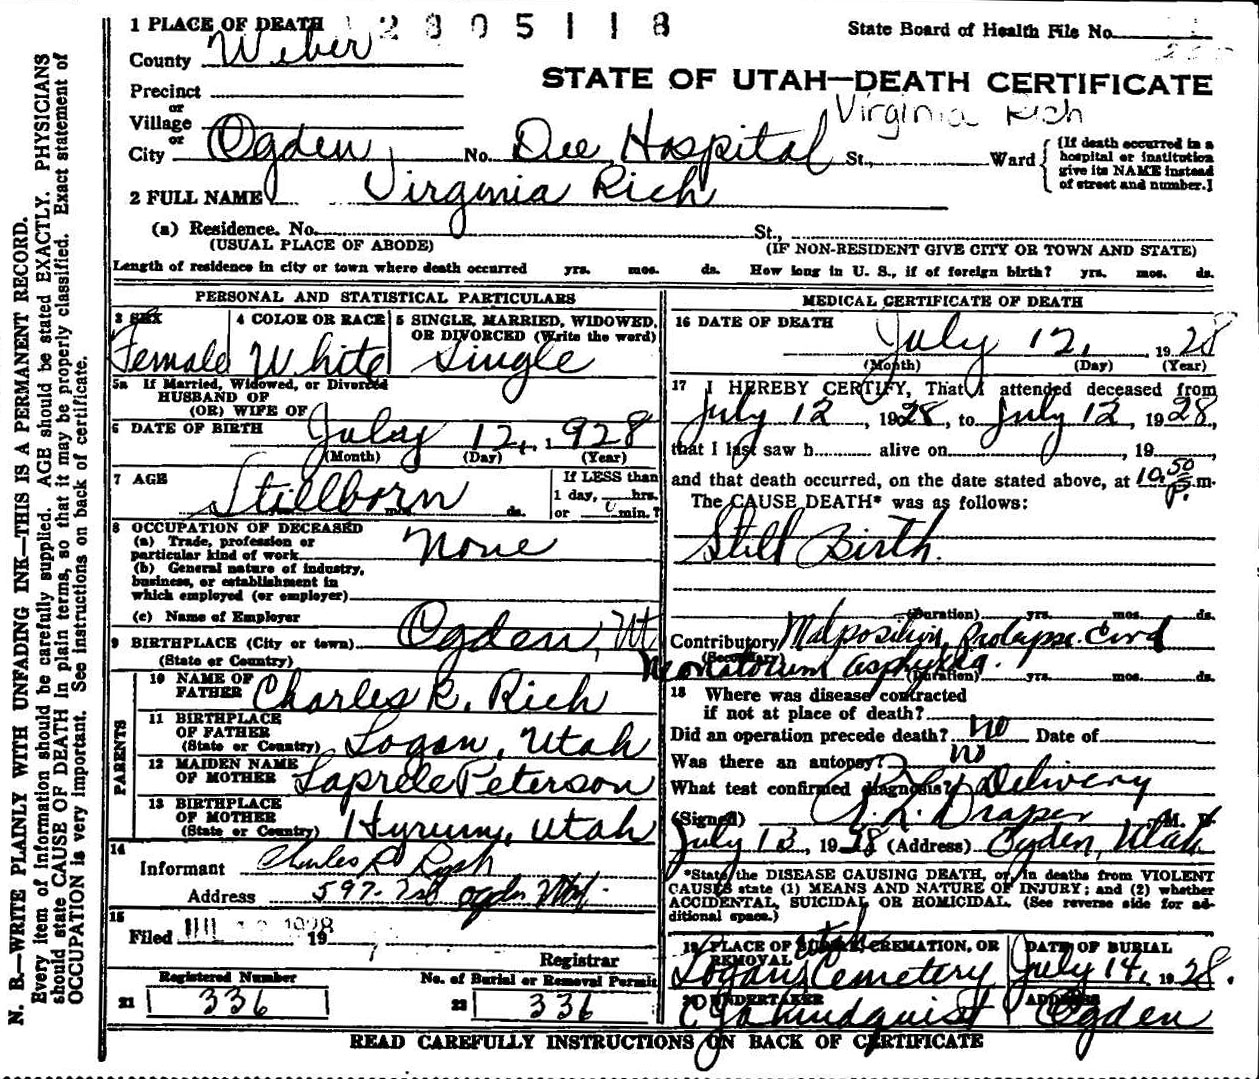 1 PLACE OF DEATH 2805118
State Board of Health File No.
County Weber
STATE OF UTAH—DEATH CERTIFICATE
Precinct
Virginia Rich
or
Village
or
City Ogden, No. Dee Hospital St., Ward
(If death occurred in a
hospital or institution
give its NAME instead
of street and number.)
2 FULL NAME Virginia Rich
(a) Residence. No. St.,
(USUAL PLACE OF ABODE) (IF NON-RESIDENT GIVE CITY OR TOWN AND STATE)
Length of residence in city or town where death occurred yrs. mos. ds. How long in U. S., if of foreign birth? yrs. mos. ds.
PERSONAL AND STATISTICAL PARTICULARS
3 SEX
Female
4 COLOR OR RACE
White
5 SINGLE, MARRIED, WIDOWED,
OR DIVORCED (Write the word)
Single
5a If Married, Widowed, or Divorced
HUSBAND OF
(OR) WIFE OF
6 DATE OF BIRTH July 12, 1928
(Month) (Day) (Year)
7 AGE
Stillborn
mos. ds.
If LESS than
1 day, hrs.
or 0 min.?
8 OCCUPATION OF DECEASED
(a) Trade, profession or
particular kind of work None
(b) General nature of industry,
business, or establishment in
which employed (or employer)
(c) Name of Employer
9 BIRTHPLACE (City or town) Ogden, Ut
(State or Country)
PARENTS
10 NAME OF
FATHER Charles R. Rich
11 BIRTHPLACE
OF FATHER
(State or Country) Logan, Utah
12 MAIDEN NAME
OF MOTHER Laprele Peterson
13 BIRTHPLACE
OF MOTHER
(State or Country) Hyrum, Utah
14
Informant Charles R Rich
Address 597-2nd Ogden Utah
15
Filed JUL 1928 19
Registrar
Registered Number
21 336
No. of Burial or Removal Permit
22 336
MEDICAL CERTIFICATE OF DEATH
16 DATE OF DEATH July 12, 1928
(Month) (Day) (Year)
17 I HEREBY CERTIFY, That I attended deceased from
July 12, 1928, to July 12, 1928,
that I last saw h alive on , 19
and that death occurred, on the date stated above, at 10.50 P.m.
The CAUSE DEATH* was as follows:
Still Birth.
(Duration) yrs. mos. ds.
Contributory Malposition, Prolapse Cord
(Secondary)
Neonatorum asphyxia.
(Duration) yrs. mos. ds.
18 Where was disease contracted
if not at place of death?
Did an operation precede death? No Date of
Was there an autopsy? No
What test confirmed diagnosis? Delivery
(Signed) R. L. Draper M. D.
July 13, 1928 (Address) Ogden, Utah
*State the DISEASE CAUSING DEATH, or, in deaths from VIOLENT
CAUSES state (1) MEANS AND NATURE OF INJURY; and (2) whether
ACCIDENTAL, SUICIDAL OR HOMICIDAL. (See reverse side for ad-
ditional space.)
19 PLACE OF BURIAL, CREMATION, OR
REMOVAL
Utah
Logan Cemetery
DATE OF BURIAL
July 14, 1928.
20 UNDERTAKER
C J A Lindquist
ADDRESS
Ogden
READ CAREFULLY INSTRUCTIONS ON BACK OF CERTIFICATE
N. B.—WRITE PLAINLY WITH UNFADING INK—THIS IS A PERMANENT RECORD.
Every item of information should be carefully supplied. AGE should be stated EXACTLY. PHYSICIANS
should state CAUSE OF DEATH in plain terms, so that it may be properly classified. Exact statement of
OCCUPATION is very important. See instructions on back of certificate.